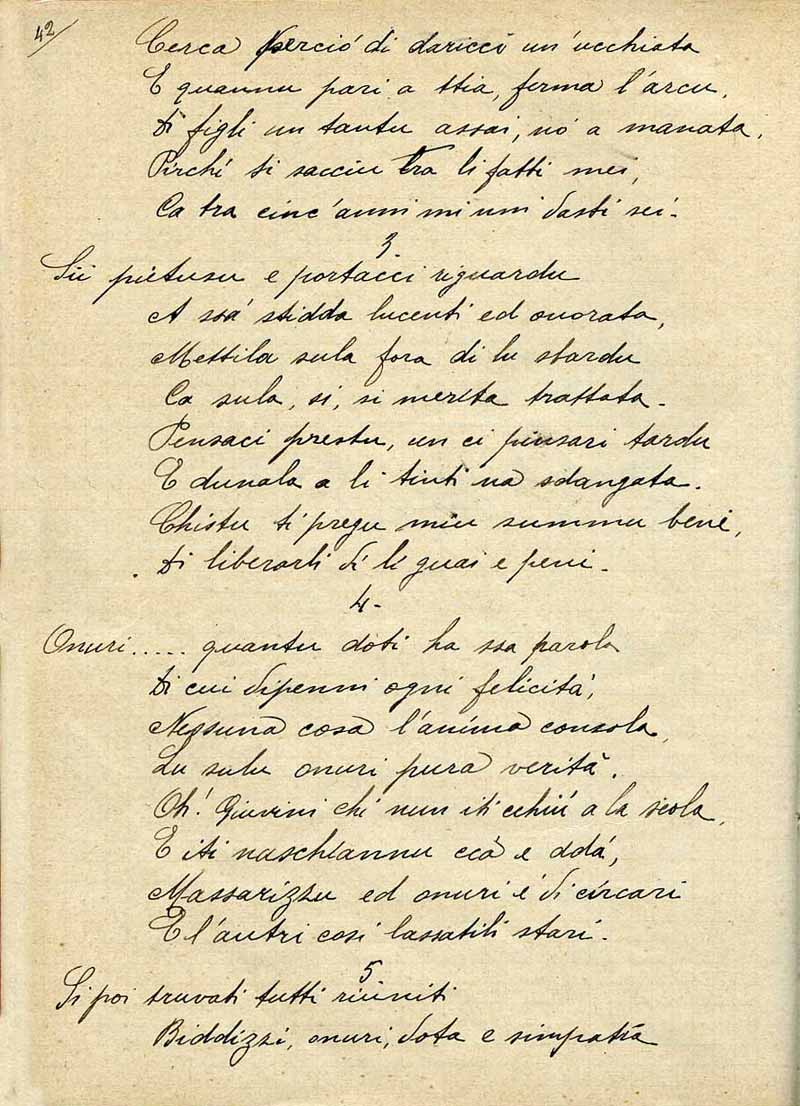 42
Cerca perciò di daricci un'ucchiata
E quannu pari a ttia, ferma l'arcu,
Di figli un tantu assai, nò a manata,
Pirchì ti sacciu tra li fatti mei,
Ca tra cinc'anni mi nni dasti sei.
3.
Sii pietusu e portacci riguardu
A ssà stidda lucenti ed onorata,
Mettila sula fora di lu stardu
Ca sula, si, si merita trattata.
Pensaci prestu, un ci pinsari tardu
E dunala a li tinti na sdangata.
Chistu ti pregu miu summu beni,
Di liberarli di li guai e peni.
4.
Onuri..... quantu doti ha ssa parola
Di cui dipenni ogni felicità,
Nessuna cosa l'anima consola,
Lu sulu onuri pura verità.
Oh! Giuvini chi nun iti cchiù a la scola,
E iti naschiannu ccà e ddà,
Massarizzu ed onuri è di circari
E l'autri cosi lassatili stari.
5
Si poi truvati tutti riuniti
Biddizzi, onuri, dota e simpatia